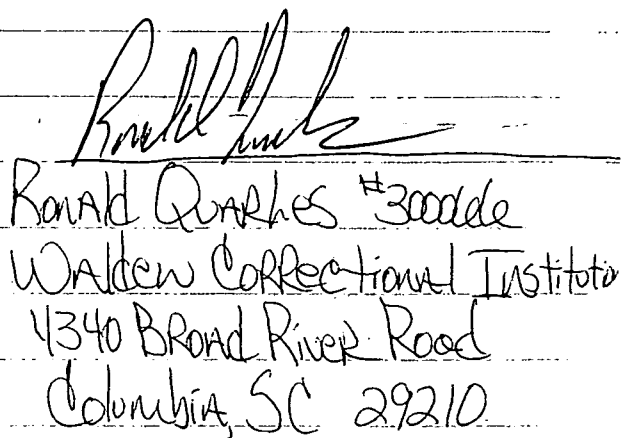 Ronald Quarles
Ronald Quarles
Walden Correctional Institutio
4340 Broad River Road
Columbia, SC 29210